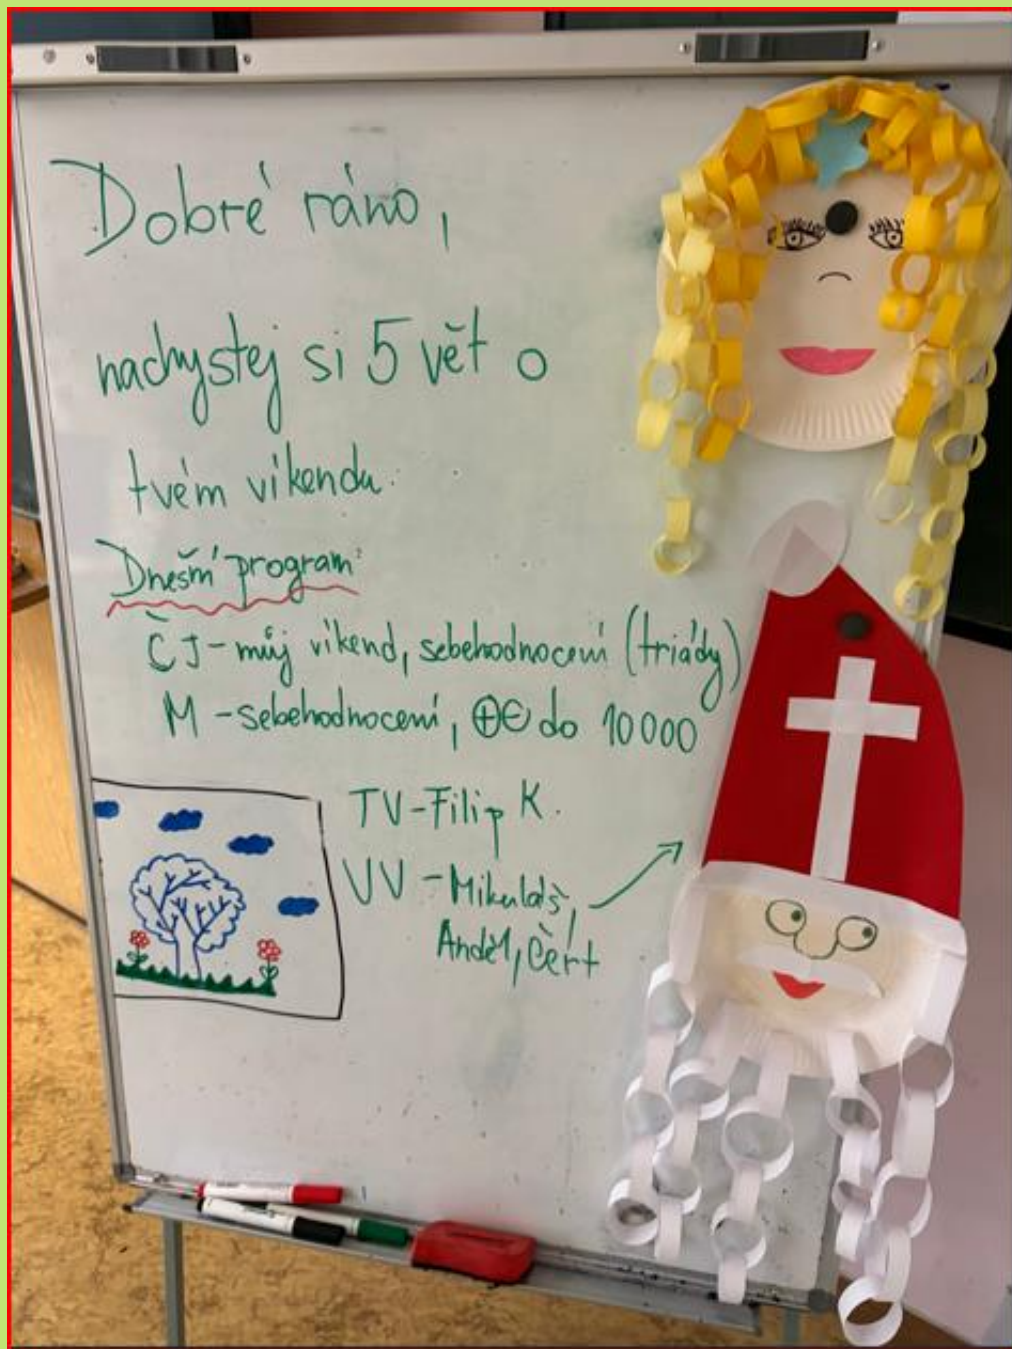 Dobré ráno,
nachystej si 5 vět o
tvém víkendu.
Dnešní program:
ČJ - můj víkend, sebehodnocení (triády)
M - sebehodnocení, ⊕⊖ do 10 000
TV - Filip K.
VV - Mikuláš,
Anděl, čert